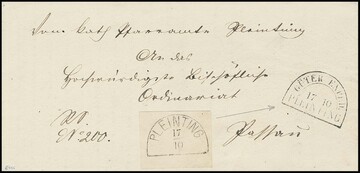 Vom Kath Pfarramte Pleinting
An das
Hochwürdigste Bischöfliche
Ordinariat
Passau
No 200.
PLEINTING
17
10
GÜTER EXPED.
17 10
PLEINTING